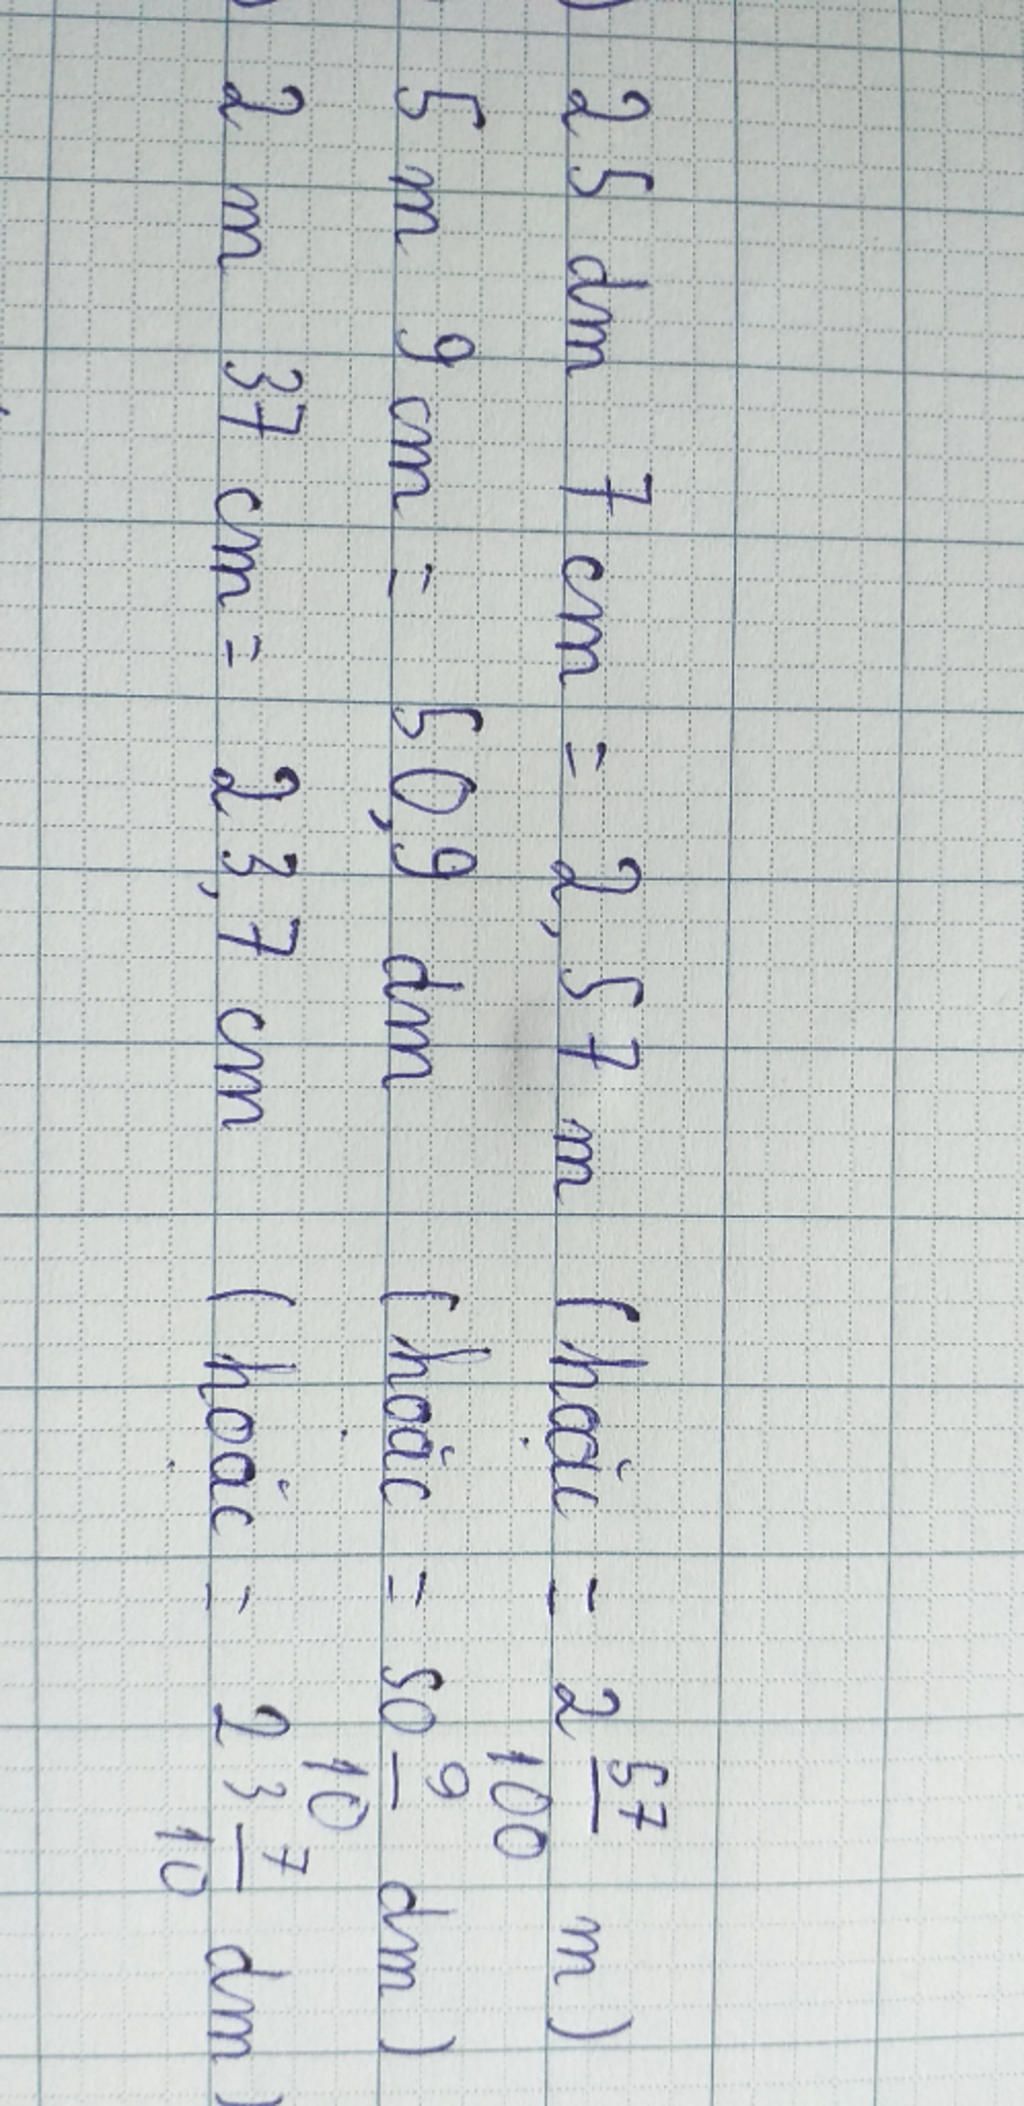 ) 25 dm 7 cm = 2,57 m (hoặc = 2 57/100 m)
5 m 9 cm = 50,9 dm (hoặc = 50 9/10 dm)
) 2 m 37 cm = 23,7 cm (hoặc = 23 7/10 dm)